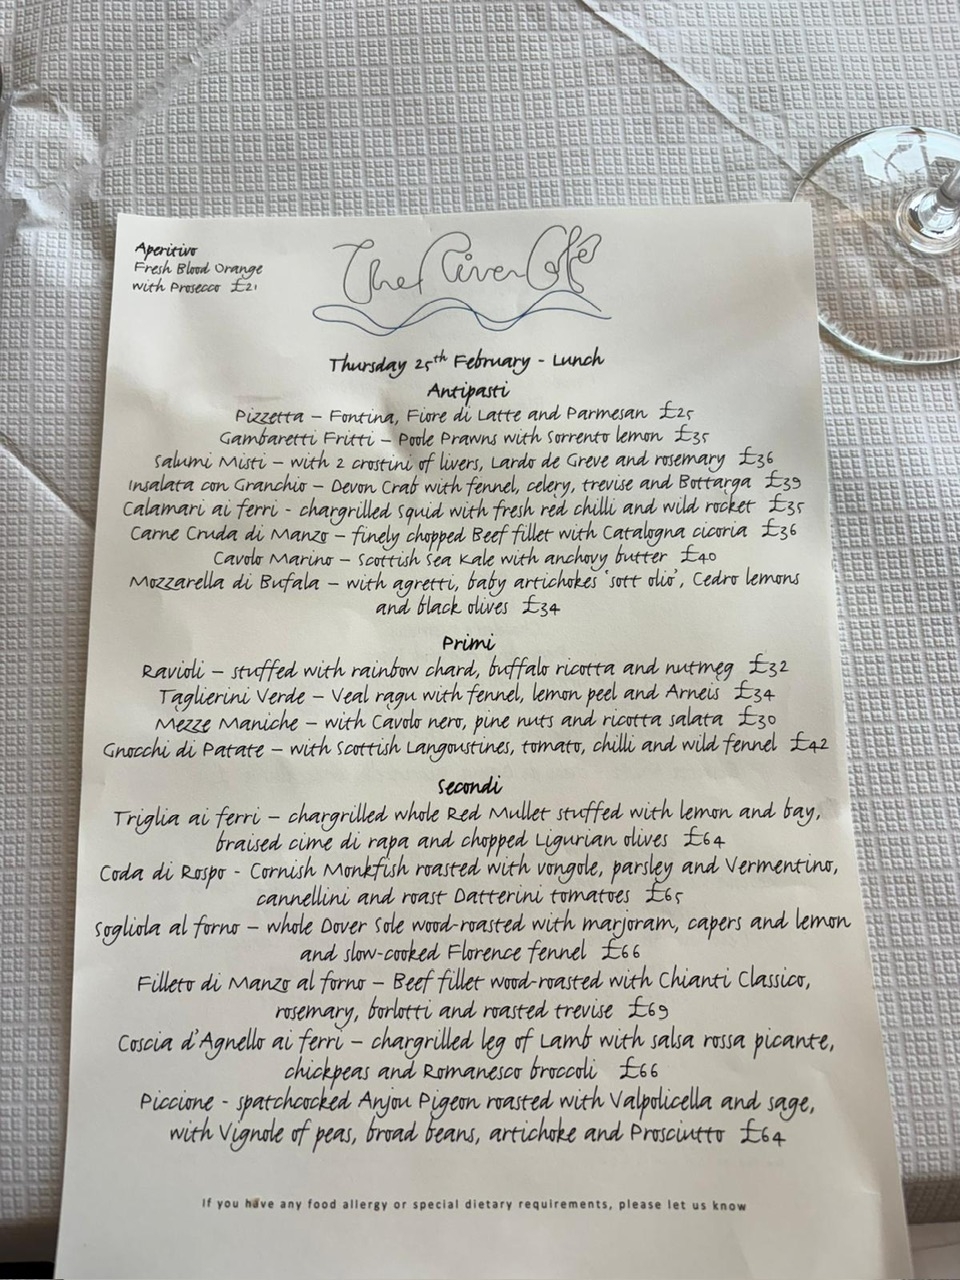 Aperitivo
Fresh Blood Orange
with Prosecco £21
The River Café
Thursday 25th February - Lunch
Antipasti
Pizzetta – Fontina, Fiore di Latte and Parmesan £25
Gambaretti Fritti – Poole Prawns with Sorrento lemon £35
Salumi Misti – with 2 crostini of livers, Lardo de Greve and rosemary £36
Insalata con Granchio – Devon Crab with fennel, celery, trevise and Bottarga £39
Calamari ai ferri - chargrilled Squid with fresh red chilli and wild rocket £35
Carne Cruda di Manzo – finely chopped Beef fillet with Catalogna cicoria £36
Cavolo Marino – Scottish Sea Kale with anchovy butter £40
Mozzarella di Bufala – with agretti, baby artichokes 'sott olio', Cedro lemons
and black olives £34
Primi
Ravioli – stuffed with rainbow chard, buffalo ricotta and nutmeg £32
Taglierini Verde – Veal ragu with fennel, lemon peel and Arneis £34
Mezze Maniche – with Cavolo nero, pine nuts and ricotta salata £30
Gnocchi di Patate – with Scottish Langoustines, tomato, chilli and wild fennel £42
Secondi
Triglia ai ferri – chargrilled whole Red Mullet stuffed with lemon and bay,
braised cime di rapa and chopped Ligurian olives £64
Coda di Rospo - Cornish Monkfish roasted with vongole, parsley and Vermentino,
cannellini and roast Datterini tomatoes £65
Sogliola al forno – whole Dover Sole wood-roasted with marjoram, capers and lemon
and slow-cooked Florence fennel £66
Filleto di Manzo al forno – Beef fillet wood-roasted with Chianti Classico,
rosemary, borlotti and roasted trevise £69
Coscia d'Agnello ai ferri – chargrilled leg of Lamb with salsa rossa picante,
chickpeas and Romanesco broccoli £66
Piccione - spatchcocked Anjou Pigeon roasted with Valpolicella and sage,
with Vignole of peas, broad beans, artichoke and Prosciutto £64
If you have any food allergy or special dietary requirements, please let us know